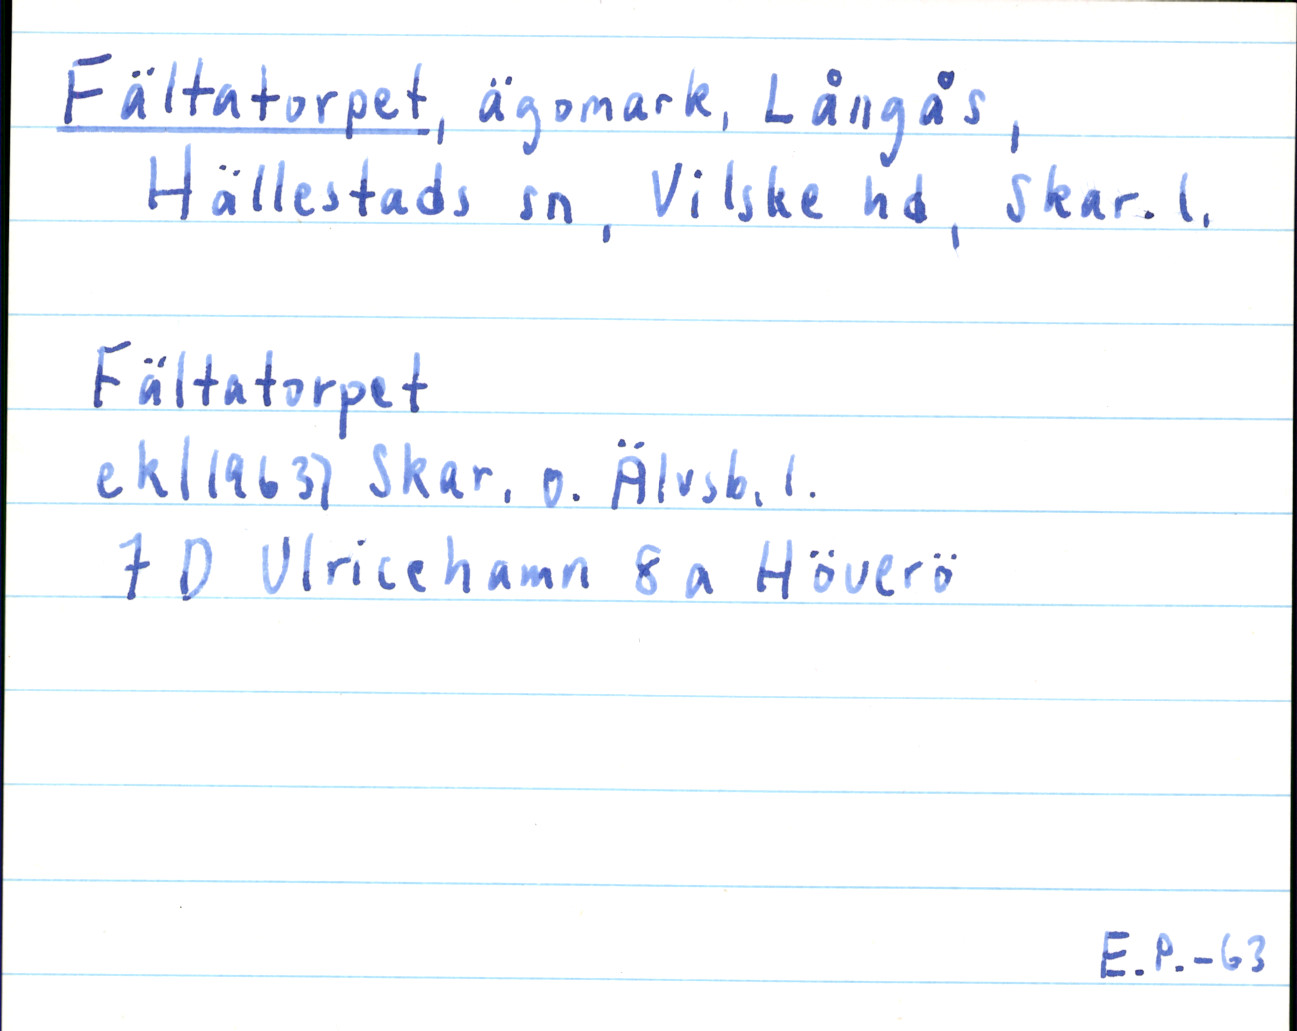 Fältatorpet, ägomark, Långås,
Hällestads sn, Vilske hd, Skar. l.
Fältatorpet
ekl(1963) Skar. o. Älvsb. l.
7 D Ulricehamn 8 a Höverö
E.P.-63